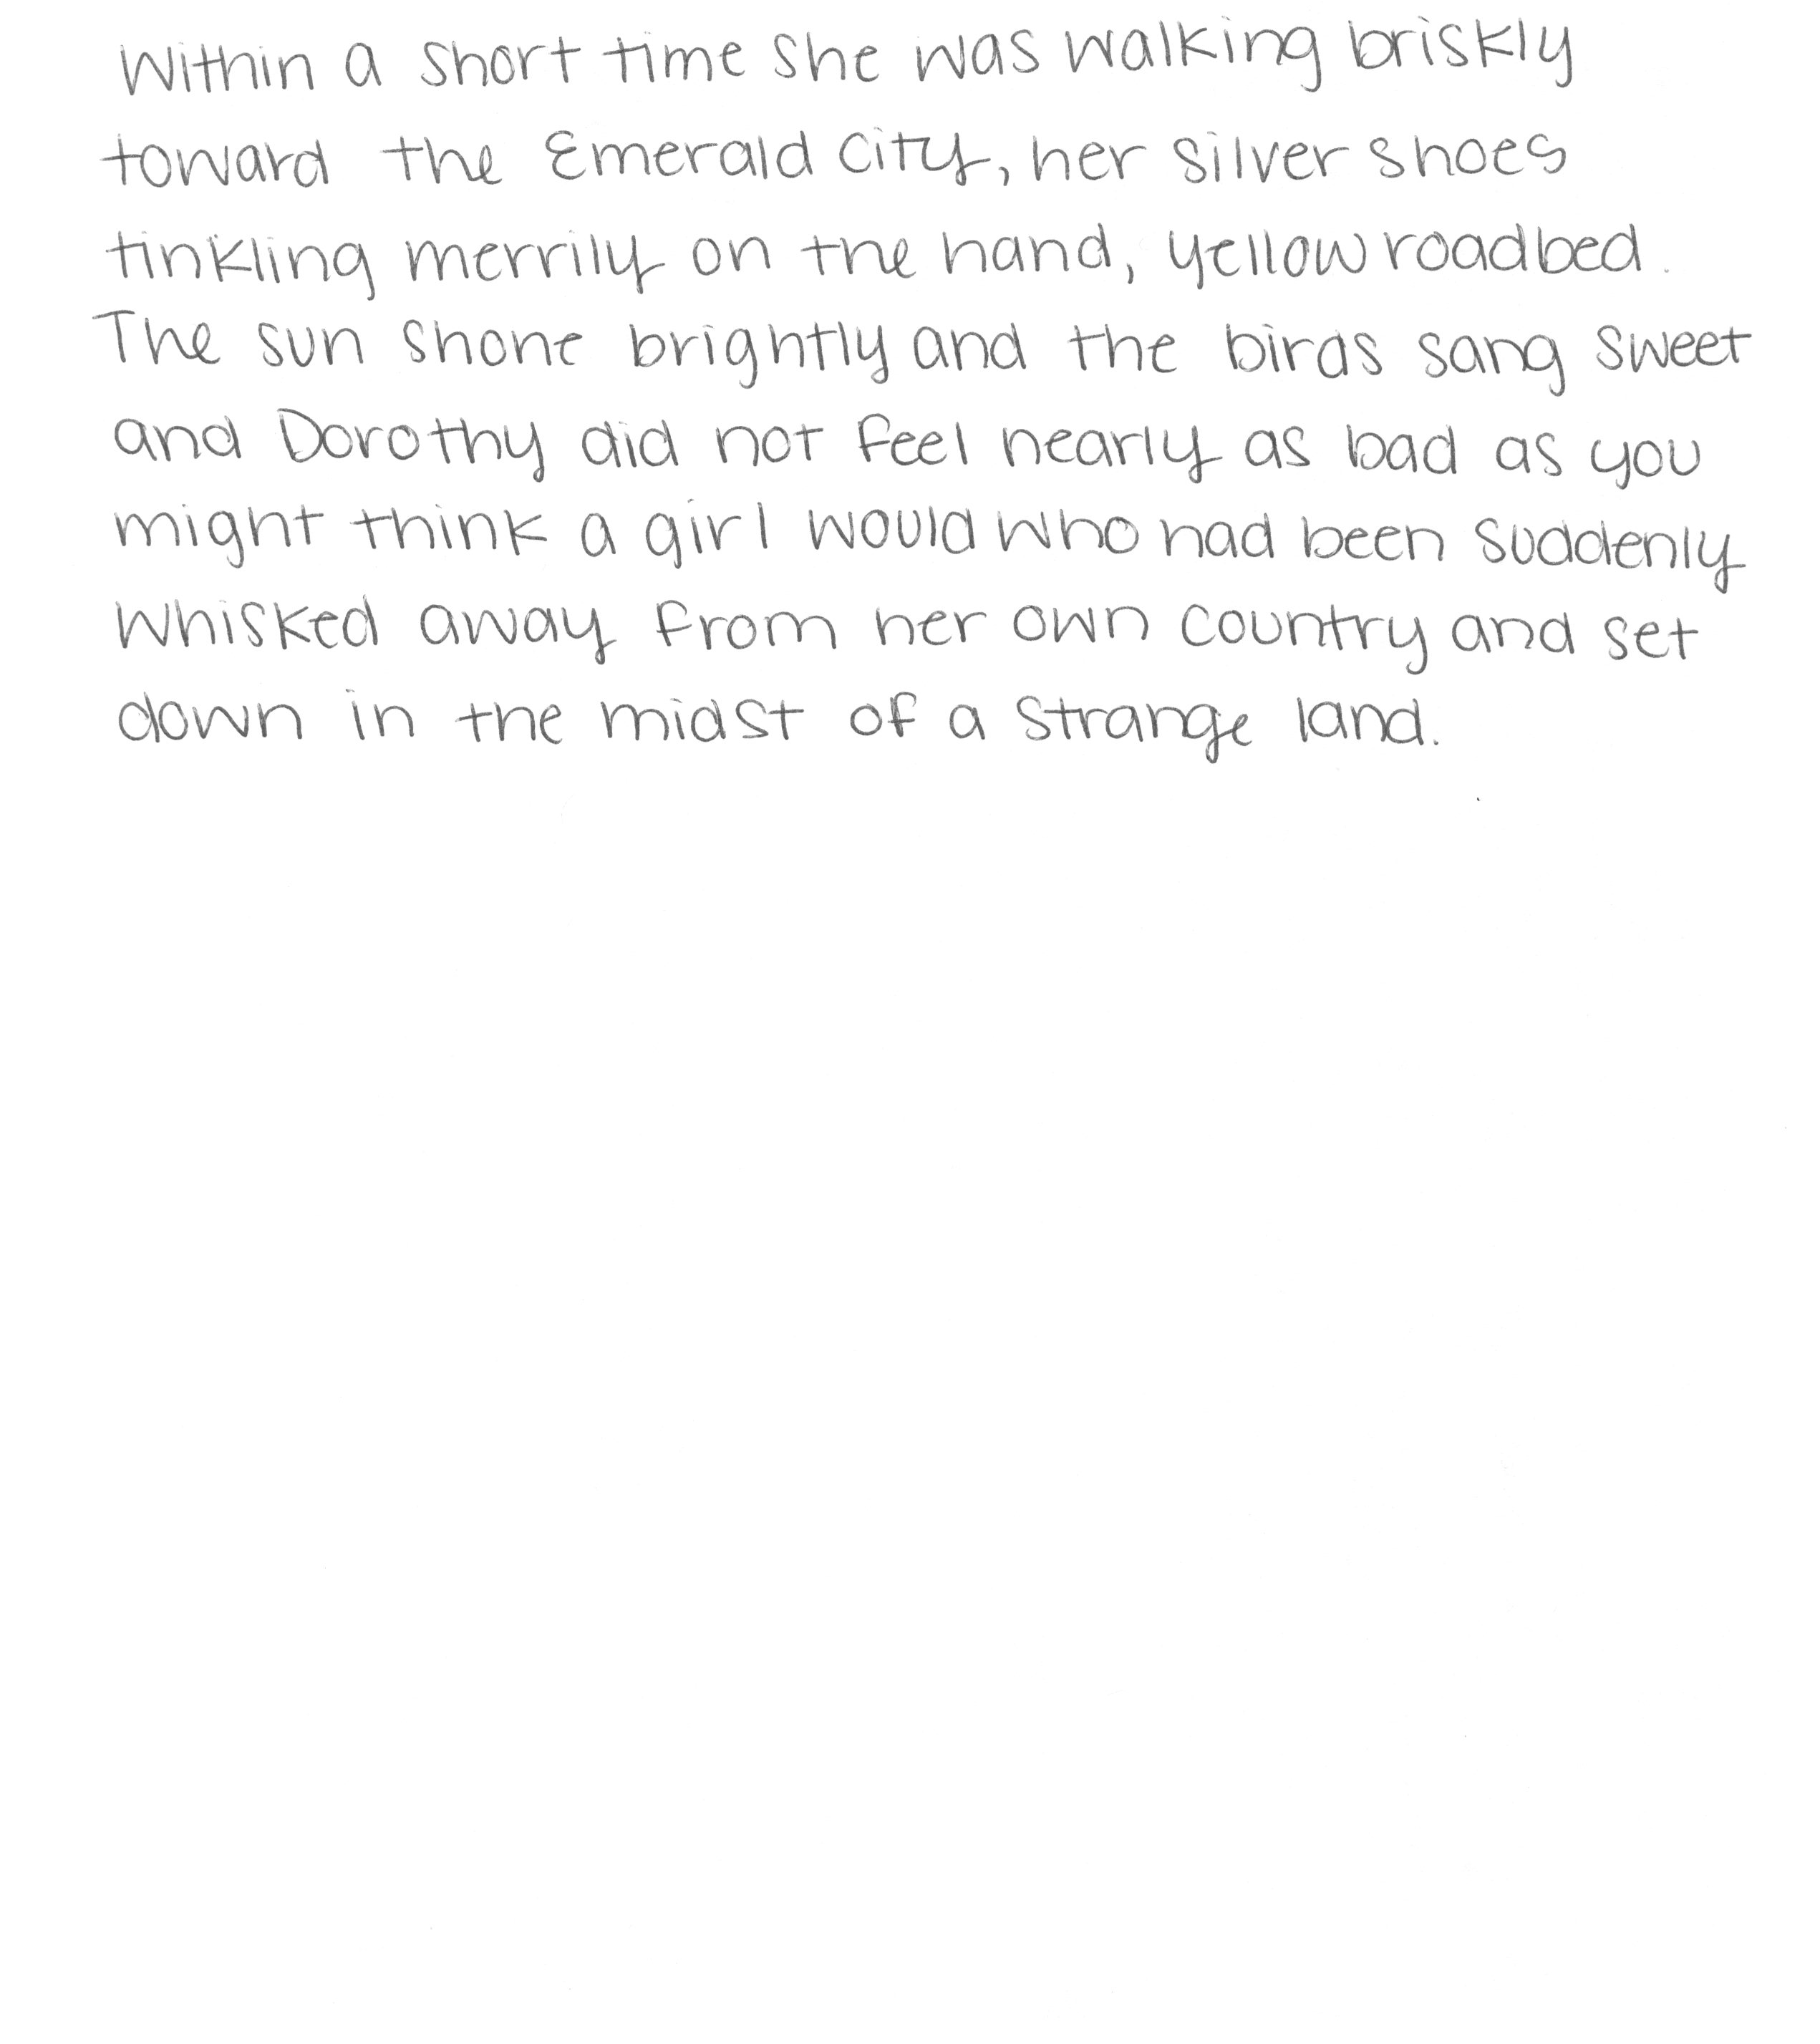 Within a short time she was walking briskly
toward the Emerald City, her silver shoes
tinkling merrily on the hand, yellow roadbed.
The sun shone brightly and the birds sang sweet
and Dorothy did not feel nearly as bad as you
might think a girl would who had been suddenly
whisked away from her own country and set
down in the midst of a strange land.